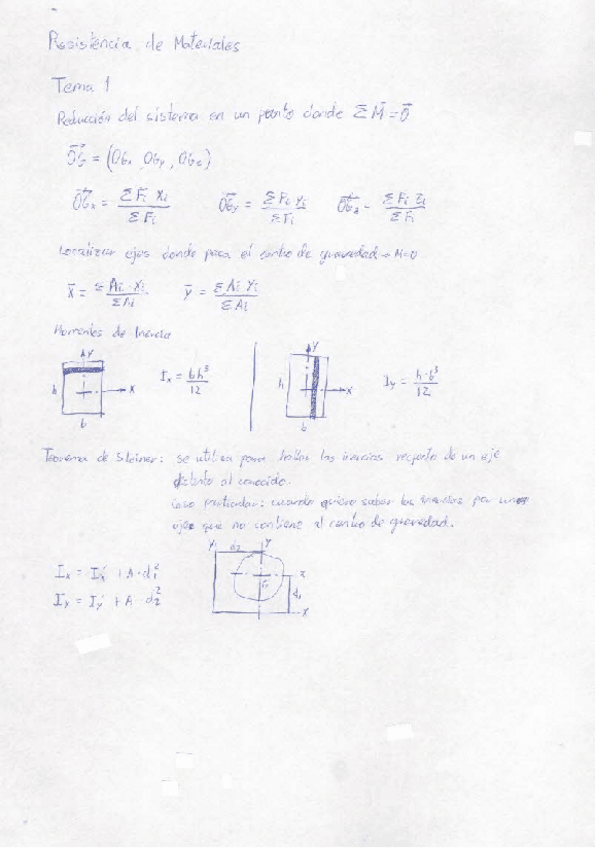 Resistencia de Materiales
Tema 1
Reducción del sistema en un punto donde ΣM⃗ = 0⃗
OG⃗ = (OGx, OGy, OGz)
OG⃗x = ΣFi xi / ΣFi OG⃗y = ΣFi yi / ΣFi OG⃗z = ΣFi zi / ΣFi
Localizar ejes donde pasa el centro de gravedad → M=0
x̄ = ΣAi·xi / ΣAi ȳ = ΣAi yi / ΣAi
Momentos de Inercia
y x h b Ix = bh³/12 y x h b Iy = h·b³/12
Teorema de Steiner: se utiliza para hallar las inercias respecto de un eje
distinto al conocido.
Caso particular: cuando quiero saber las inercias por unos
ejes que no contiene el centro de gravedad.
Ix = Ix' + A·d₁²
Iy = Iy' + A·d₂²
y d₂ y d₁ x